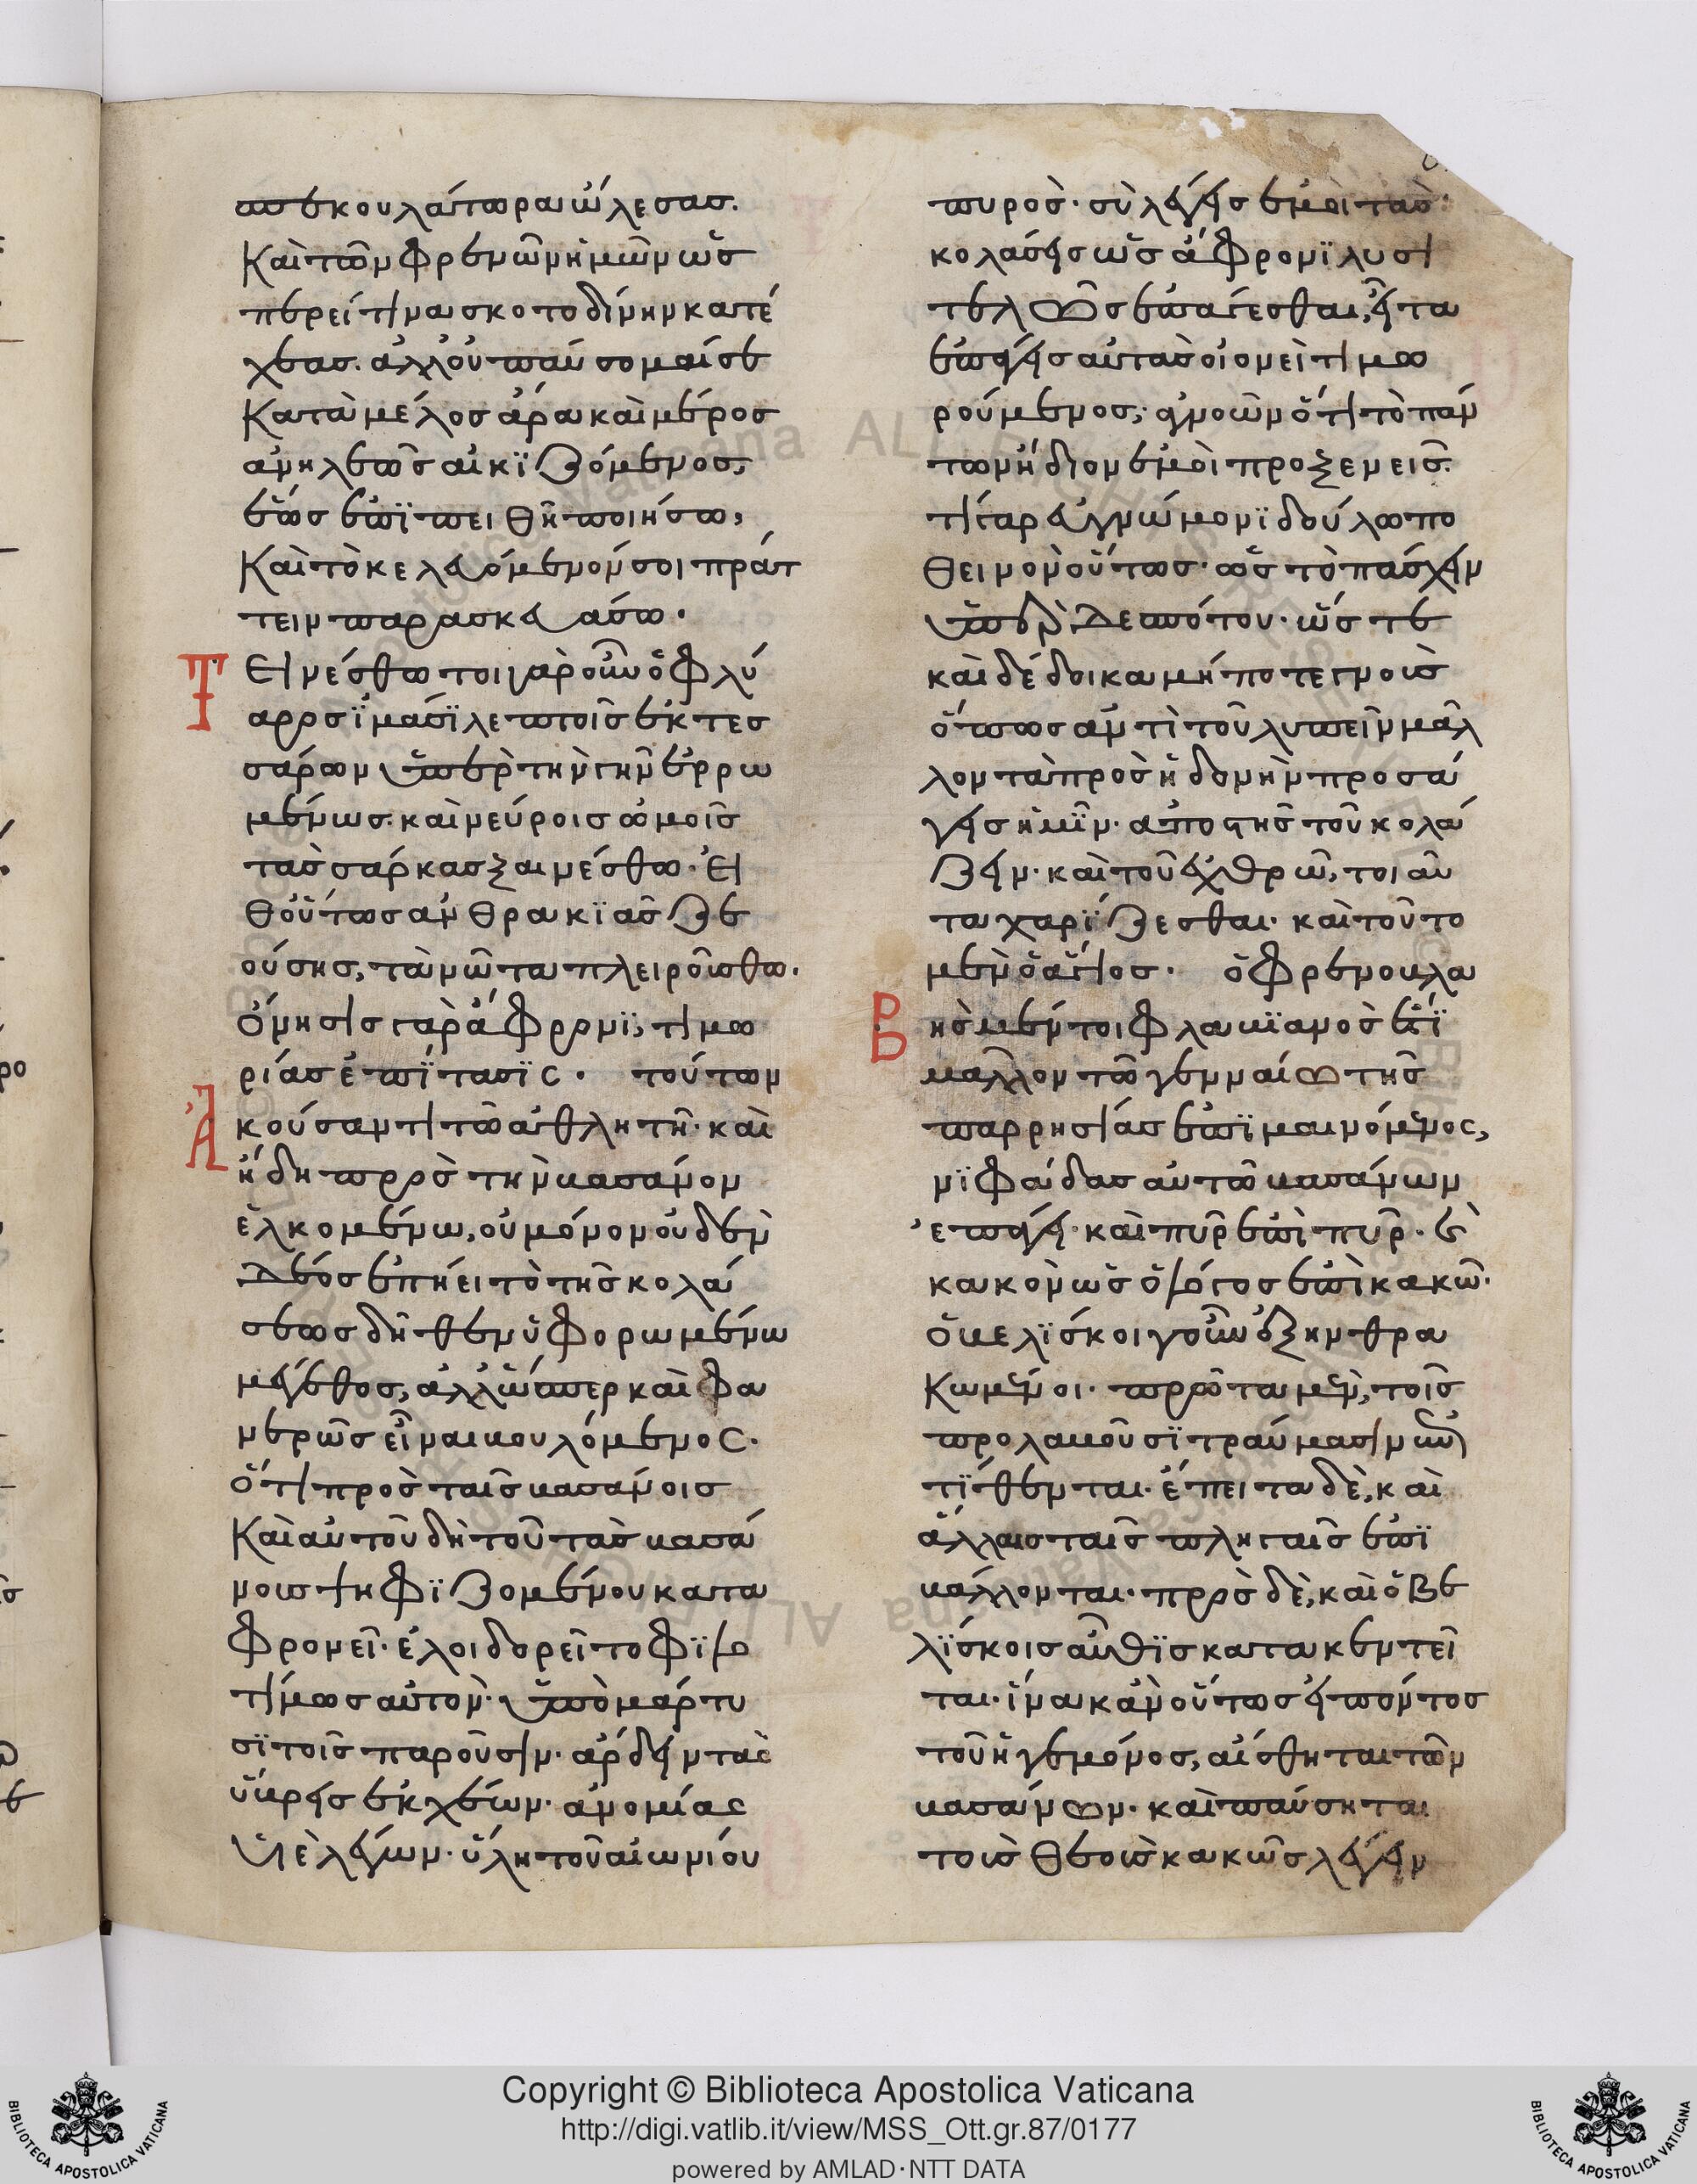 σπεκουλάτορα ὤλεσας.
Καὶ τῶν φρενῶν ἡμῶν ὡς
περεί τινα σκοτοδίνην κατέ
χεας. ἀλλ' οὐ παύσομαί σε
Κατὰ μέλος ἄρα καὶ μέρος
ἀνηλεῶς αἰκιζόμενος,
ἕως ἐπιπειθῆ ποιήσω,
Καὶ τὸ κελευόμενόν σοι πράτ
τειν παρασκευάσω.
Τεινέσθω τοιγαροῦν ὁ φλύ
αρος ἱμᾶσι λεπτοῖς ἐκ τεσ
σάρων ὑπὲρ τὴν γῆν ἐρρω
μένως. καὶ νεύροις ὠμοῖς
τὰς σάρκας ξαινέσθω. εἶ
θ' οὕτως ἀνθρακιᾶς ζε
ούσης, τὰ νῶτα πυρούσθω.
ὄνησις γὰρ ἄφρονι, τιμω
ρίας ἐπίτασις. τούτων
Ἀκούσαντι τῶ ἀθλητῆ. καὶ
ἤδη πρὸς τὴν βάσανον
ἑλκομένω, οὐ μόνον οὐδὲν
δέος ἐπήει τὸ τῆς κολά
σεως δῆθεν ὑφορωμένω
μέγεθος, ἀλλ' ὥσπερ καὶ φα
νερῶς εἶναι βουλόμενος.
ὅτι πρὸς ταῖς βασάνοις
Καὶ αὐτοῦ δὴ τοῦ τὰς βασά
νους ψηφιζομένου κατα
φρονεῖ. ἐλοιδορεῖτο φιλο
τίμως αὐτὸν. ὑπὸ μάρτυ
σι τοῖς παροῦσιν. ἄρδην τὰς
ὕβρεις ἐκχέων. ἀνομίας
υἱὲ λέγων. ὕλη τοῦ αἰωνίου
πυρὸς. σὺ λέγεις ἐμοὶ τὰς
κολάσεις ὡς ἄφρονι λυσι
τελῶς ἐπάγεσθαι, εἶτα
ἐπάγεις αὐτὰς οἱονεὶ τιμω
ρούμενος; ἀγνοῶν ὅτι τὸ πάν
των ἥδιον ἐμοὶ προξενεῖς.
τί γὰρ εὐγνώμονι δούλω πο
θεινὸν οὕτως. ὡς τὸ πάσχειν
ὑπὲρ δεσπότου. ὥς γε
καὶ δέδοικα μήποτε γνοὺς
ὅπως ἀντὶ τοῦ λυπεῖν μᾶλ
λον τὰ πρὸς ἡδονὴν προσά
γεις ἡμῖν. ἀποστῆς τοῦ κολά
ζειν. καὶ τοῦ ἐχθρῶ, τοιαῦ
τα χαρίζεσθαι. καὶ τοῦτο
μὲν ὁ ἅγιος. ὁ φρενοβλα
Βὴς μέντοι φλαβιανὸς ἔτι
μᾶλλον τῶ γενναίω τῆς
παρρησίας ἐπιμαινόμενος,
νιφάδας αὐτῶ βασάνων
ἐπάγει. καὶ πῦρ ἐπὶ πῦρ. ἢ
κακὸν ὡς ὁ λόγος ἐπὶ κακῶ.
ὀβελίσκοι γοῦν ὀξεῖς ἠνθρα
Κωμένοι. πρῶτα μὲν, τοῖς
προλαβοῦσι τραύμασιν ἐν
τίθενται. ἔπειτα δὲ, καὶ
ἄλλαις ταῖς πληγαῖς ἐπι
βάλλονται. πρὸς δὲ, καὶ ὀβε
λίσκοις αὖθις κατακεντεῖ
ται. ἵνα κἂν οὕτως εἴποντος
τοῦ ἡγεμόνος, αἴσθηται τῶν
βασάνων. καὶ παύσηται
τοὺς θεοὺς κακῶς λέγειν
Copyright © Biblioteca Apostolica Vaticana
http://digi.vatlib.it/view/MSS_Ott.gr.87/0177
powered by AMLAD·NTT DATA
BIBLIOTECA APOSTOLICA VATICANA
BIBLIOTECA APOSTOLICA VATICANA